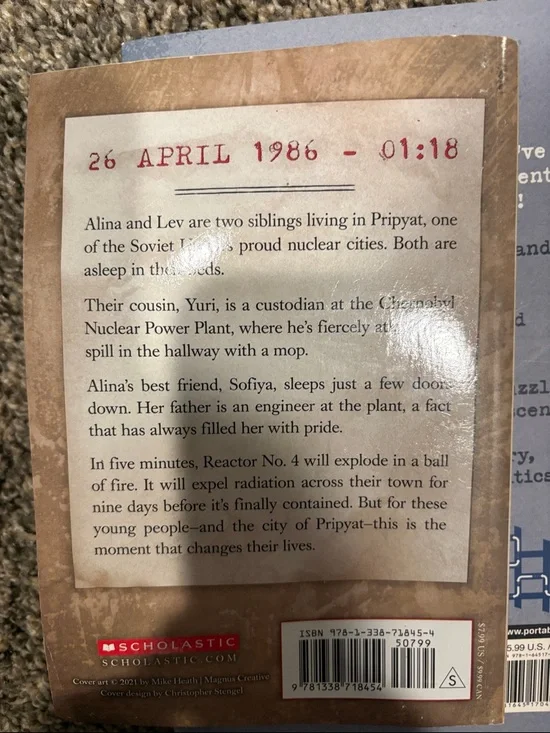 26 APRIL 1986 - 01:18
Alina and Lev are two siblings living in Pripyat, one
of the Soviet proud nuclear cities. Both are
asleep in
Their cousin, Yuri, is a custodian at the Chernobyl
Nuclear Power Plant, where he's fiercely
spill in the hallway with a mop.
Alina's best friend, Sofiya, sleeps just a few doors
down. Her father is an engineer at the plant, a fact
that has always filled her with pride.
In five minutes, Reactor No. 4 will explode in a ball
of fire. It will expel radiation across their town for
nine days before it's finally contained. But for these
young people—and the city of Pripyat—this is the
moment that changes their lives.
SCHOLASTIC
SCHOLASTIC.COM
Cover art © 2021 by Mike Heath | Magnus Creative
Cover design by Christopher Stengel
ISBN 978-1-338-71845-4
50799
9 781338 718454
S
$7.99 US / $9.99 CAN
've
ent
!
and
d
izzl
scen
ry,
tics
www.portab
5.99 U.S. /